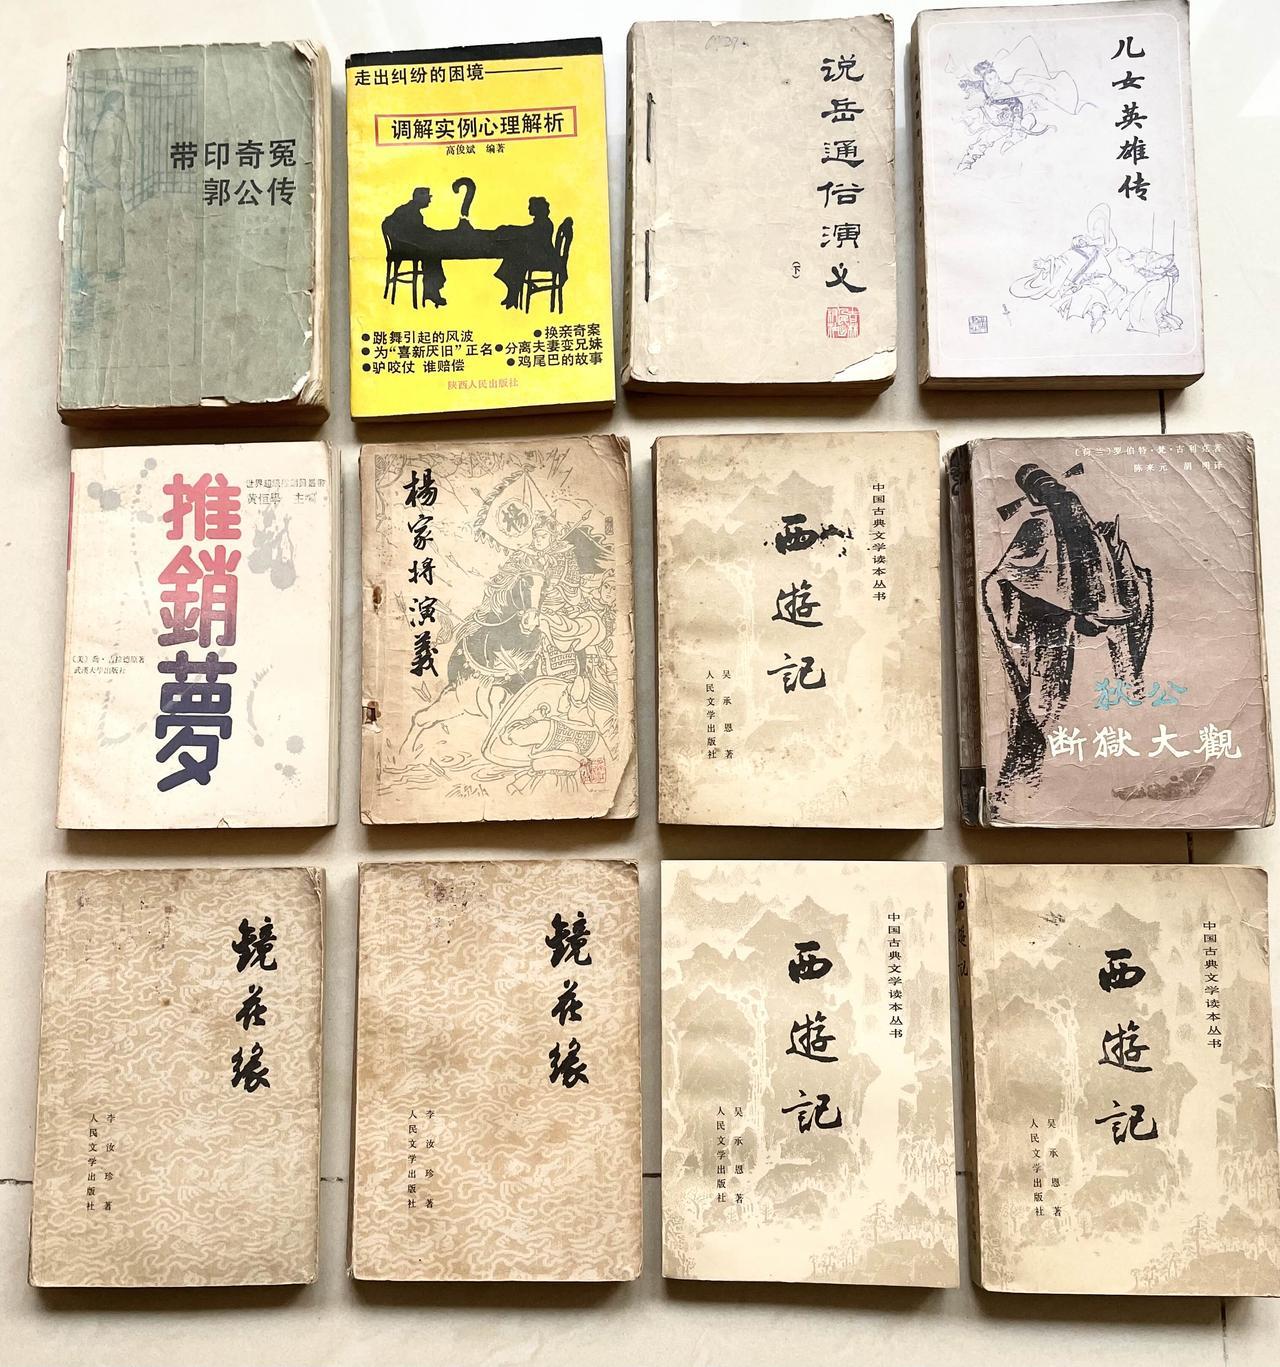 带印奇冤
郭公传
走出纠纷的困境————
调解实例心理解析
高俊斌 编著
●跳舞引起的风波
●换亲奇案
●为“喜新厌旧”正名
●分离夫妻变兄妹
●驴咬仗 谁赔偿
●鸡尾巴的故事
陕西人民出版社
说岳通俗演义
(下)
儿女英雄传
推銷夢
黄恒学 主编
(美)乔·吉拉德原著
武漢大学出版社
楊家将演義
楊
中国古典文学读本丛书
西遊記
吴承恩著
人民文学出版社
(荷兰)罗伯特·梵·古利克著
陈来元 胡明译
狄公
断獄大觀
镜花缘
李汝珍著
人民文学出版社
镜花缘
李汝珍著
人民文学出版社
中国古典文学读本丛书
西遊記
吴承恩著
人民文学出版社
西遊記
中国古典文学读本丛书
西遊記
吴承恩著
人民文学出版社